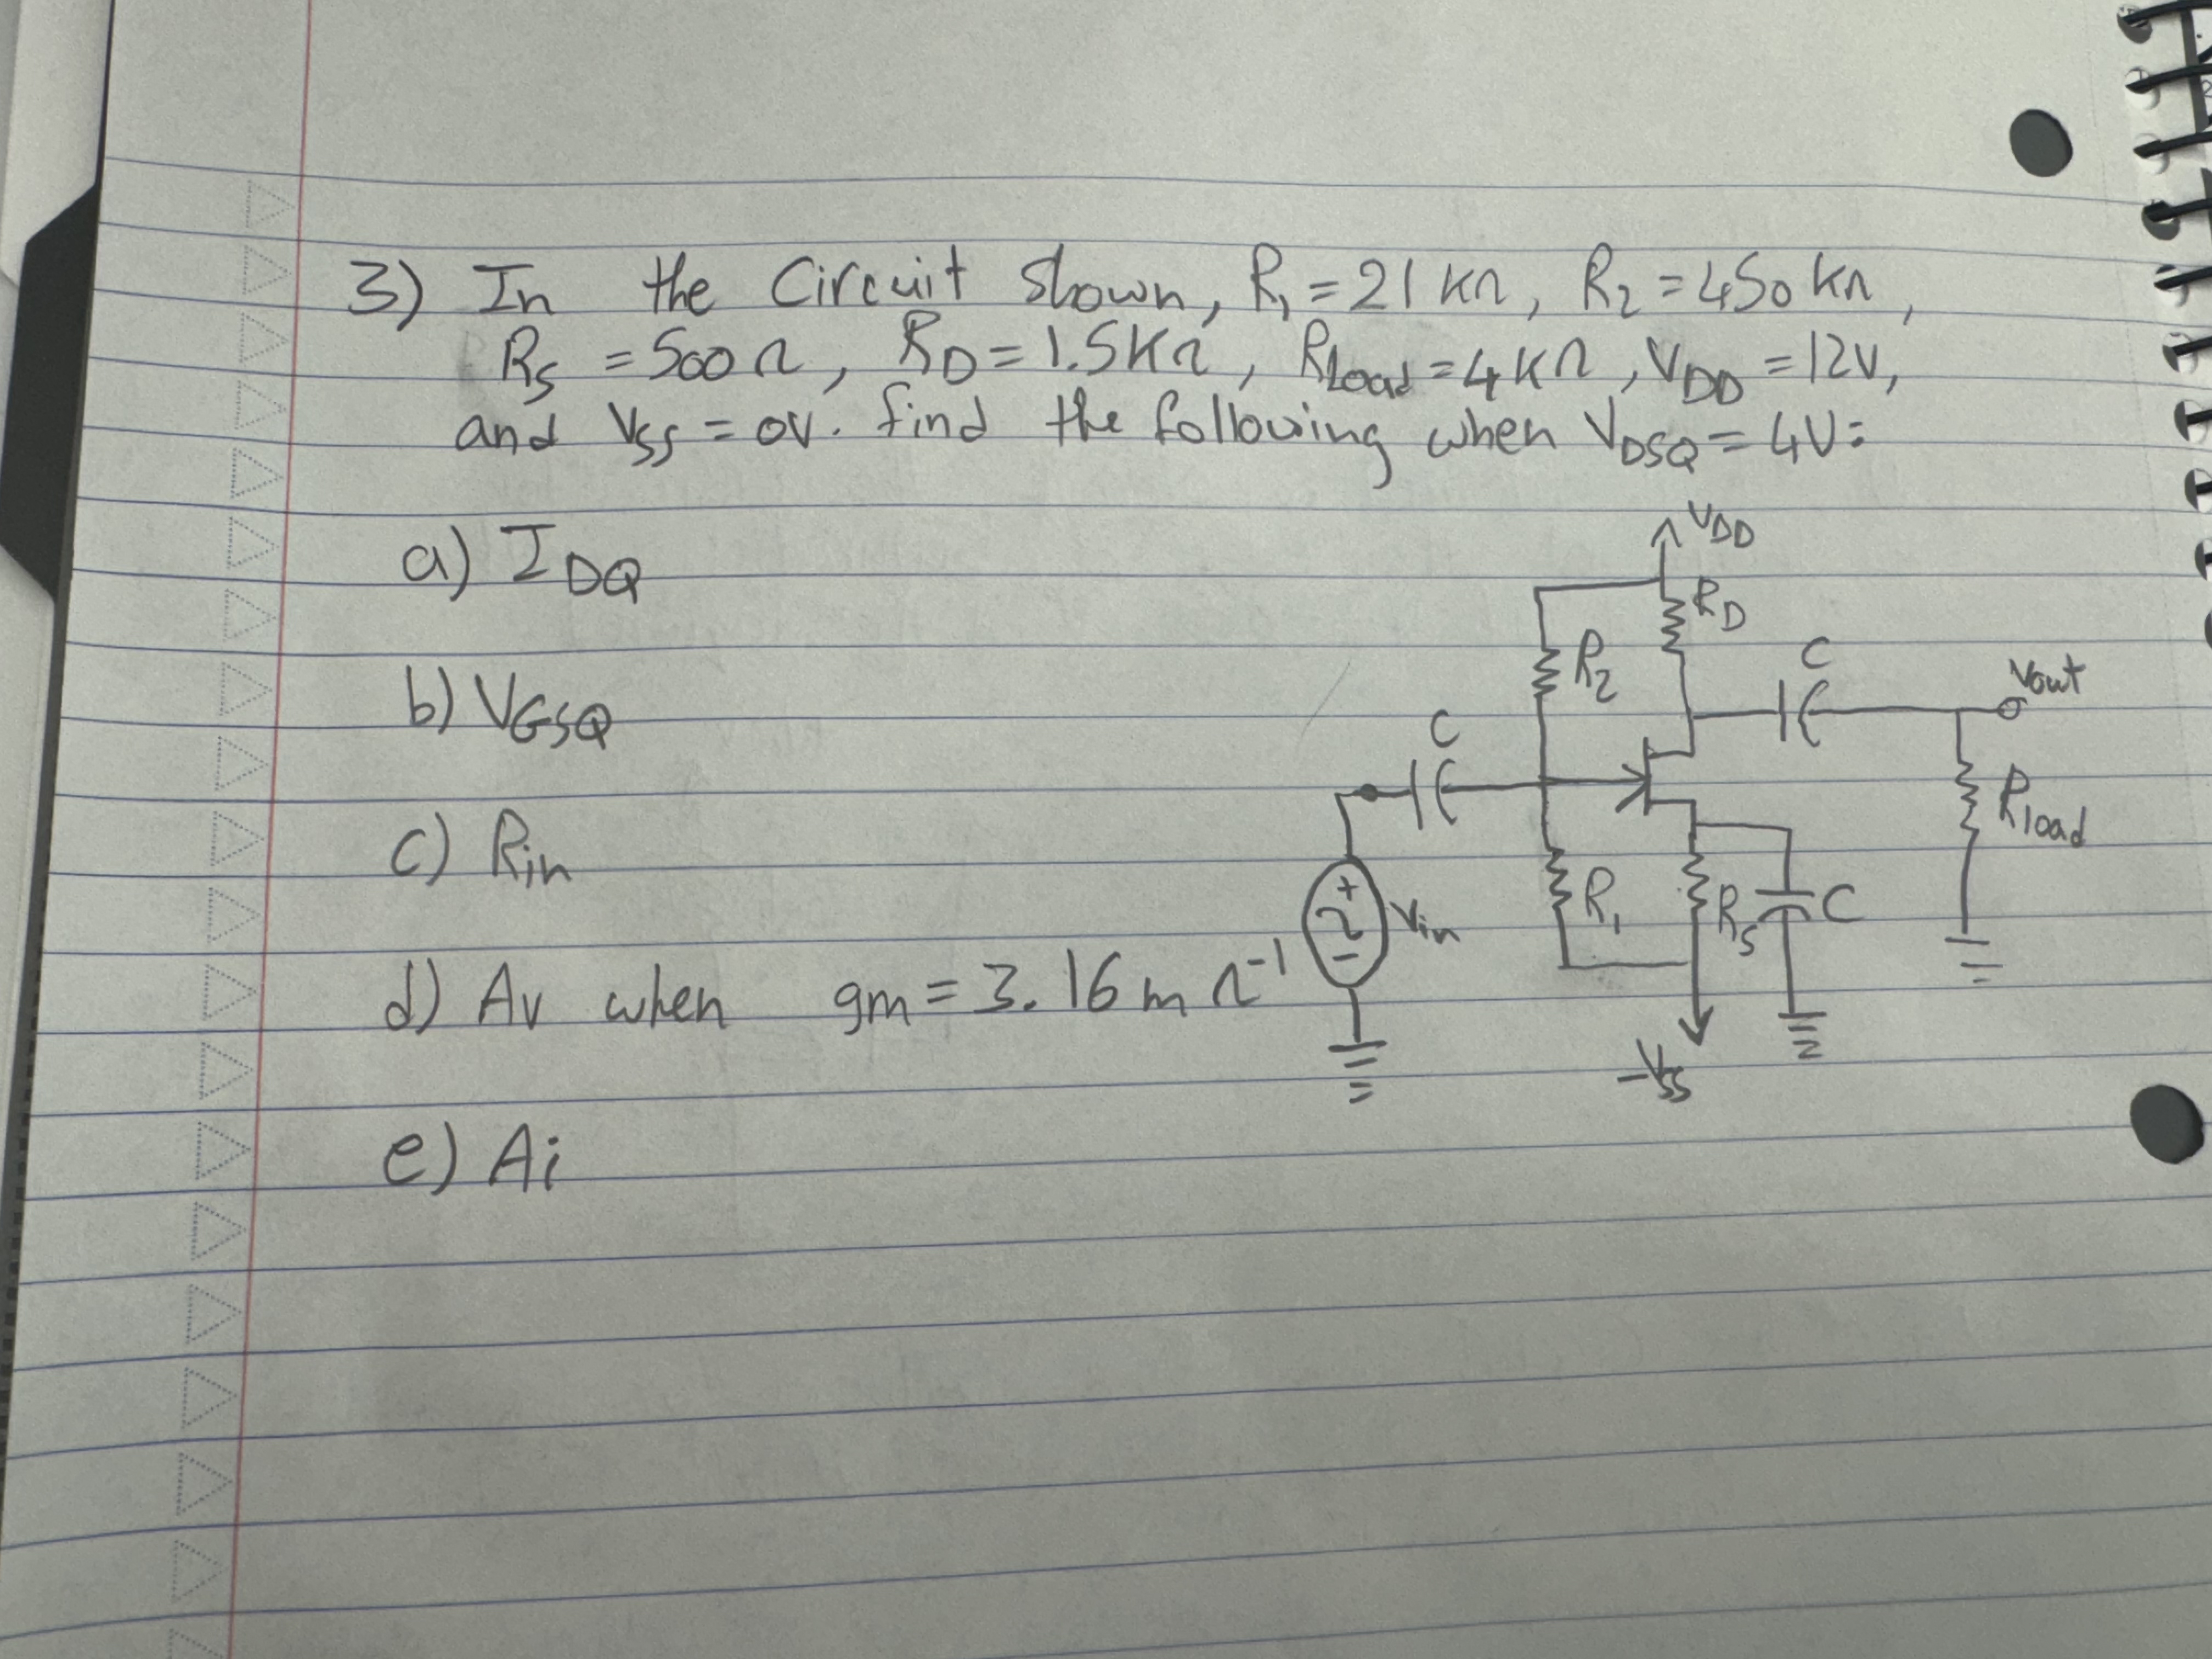 3) In the Circuit shown, R₁ = 21 kΩ, R₂ = 450 kΩ,
R_S = 500 Ω, R_D = 1.5 KΩ, R_Load = 4 KΩ, V_DD = 12V,
and V_SS = 0V. find the following when V_DSQ = 4V:
a) I_DQ
b) V_GSQ
c) R_in
d) Av when gm = 3.16 m Ω⁻¹
e) Ai
V_DD
R_D
R₂
C
Vout
C
R_load
Vin
R₁
R_S
C
-V_SS